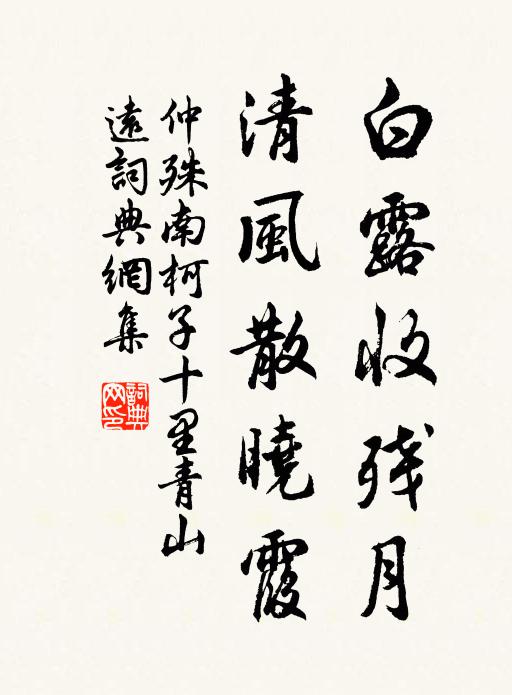 白露收残月
清風散曉霞
仲殊南柯子十里青山
遠詞典網集
詞典网印